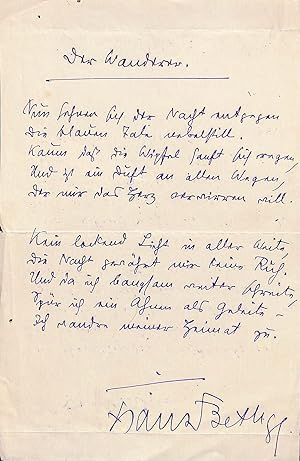 Der Wanderer.
Nun lehnen sich der Nacht entgegen
Die blauen Tale nebelstill.
Kaum daß die Wipfel sanft sich regen,
Und ist ein Duft an allen Wegen,
Der mir das Herz verwirren will.
Kein lockend Licht in aller Weite,
Die Nacht gewährt mir keine Ruh.
Und da ich langsam weiter schreite,
Spür ich ein Ahnen als Geleite –
Ich wandre meiner Heimat zu.
Hans Bethge